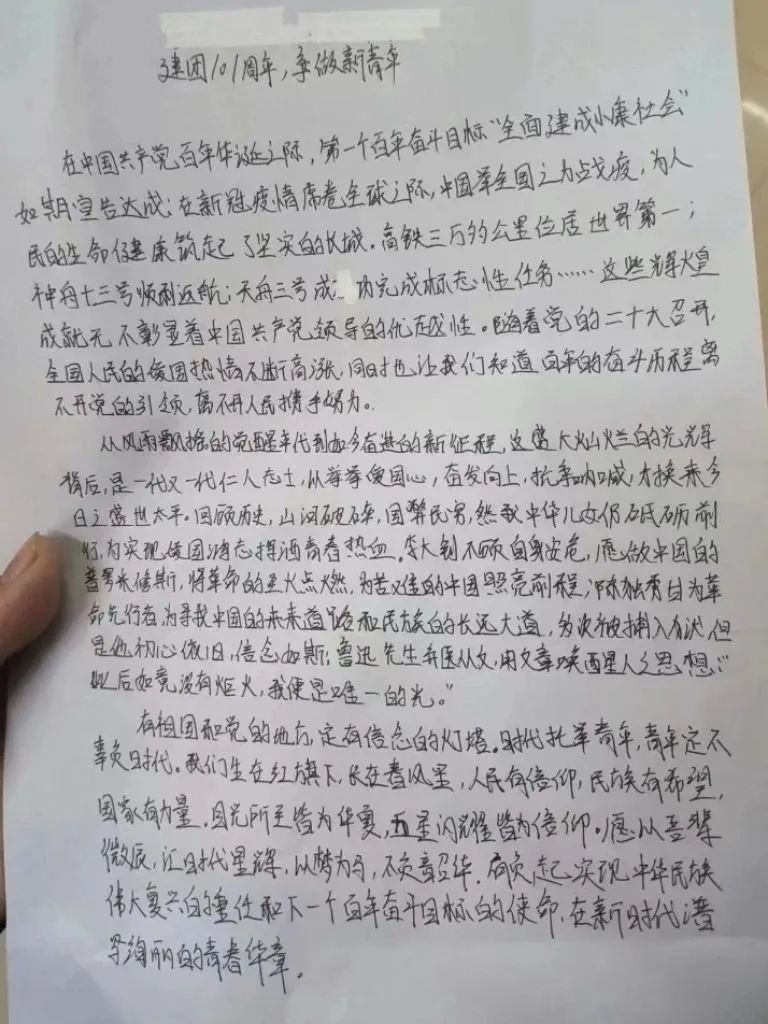 建团101周年，争做新青年
在中国共产党百年华诞之际，第一个百年奋斗目标“全面建成小康社会”
如期宣告达成；在新冠疫情席卷全球之际，中国举全国之力战疫，为人
民的生命健康筑起了坚实的长城。高铁三万多公里位居世界第一；
神舟十三号顺利返航；天舟三号成功完成标志性任务……这些辉煌
成就无不彰显着中国共产党领导的优越性。随着党的二十大召开，
全国人民的爱国热情不断高涨，同时也让我们知道百年的奋斗历程离
不开党的引领，离不开人民携手努力。
从风雨飘摇的觉醒年代到如今奋进的新征程，这盛大灿烂的光辉
背后，是一代又一代仁人志士，以拳拳爱国心，奋发向上，抗争呐喊，才换来今
日之盛世太平。回顾历史，山河破碎，国弊民穷，然我中华儿女仍砥砺前
行，为实现爱国清志挥洒青春热血。李大钊不顾自身安危，愿做中国的
普罗米修斯，将革命的星火点燃，为苦难的中国照亮前程；陈独秀甘为革
命先行者，为寻找中国的未来道路和民族的长远大道，多次被捕入狱，但
是他初心依旧，信念如斯；鲁迅先生弃医从文，用文章唤醒星人之思想：“
此后如竟没有炬火，我便是唯一的光。”
有祖国和党的地方，定有信念的灯塔。时代托举青年，青年定不
辜负时代。我们生在红旗下，长在春风里，人民有信仰，民族有希望，
国家有力量。目光所至皆为华夏，五星闪耀皆为信仰。愿以吾辈
微辰，汇时代星辉，以梦为马，不负韶华，肩负起实现中华民族
伟大复兴的重任和下一个百年奋斗目标的使命，在新时代谱
写绚丽的青春华章。